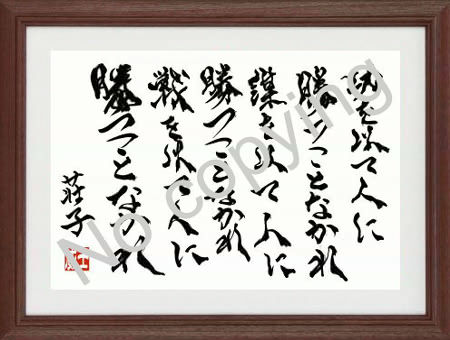 巧を以て人に
勝つことなかれ
謀を以て人に
勝つことなかれ
戦を以て人に
勝つことなかれ
荘子
No copying